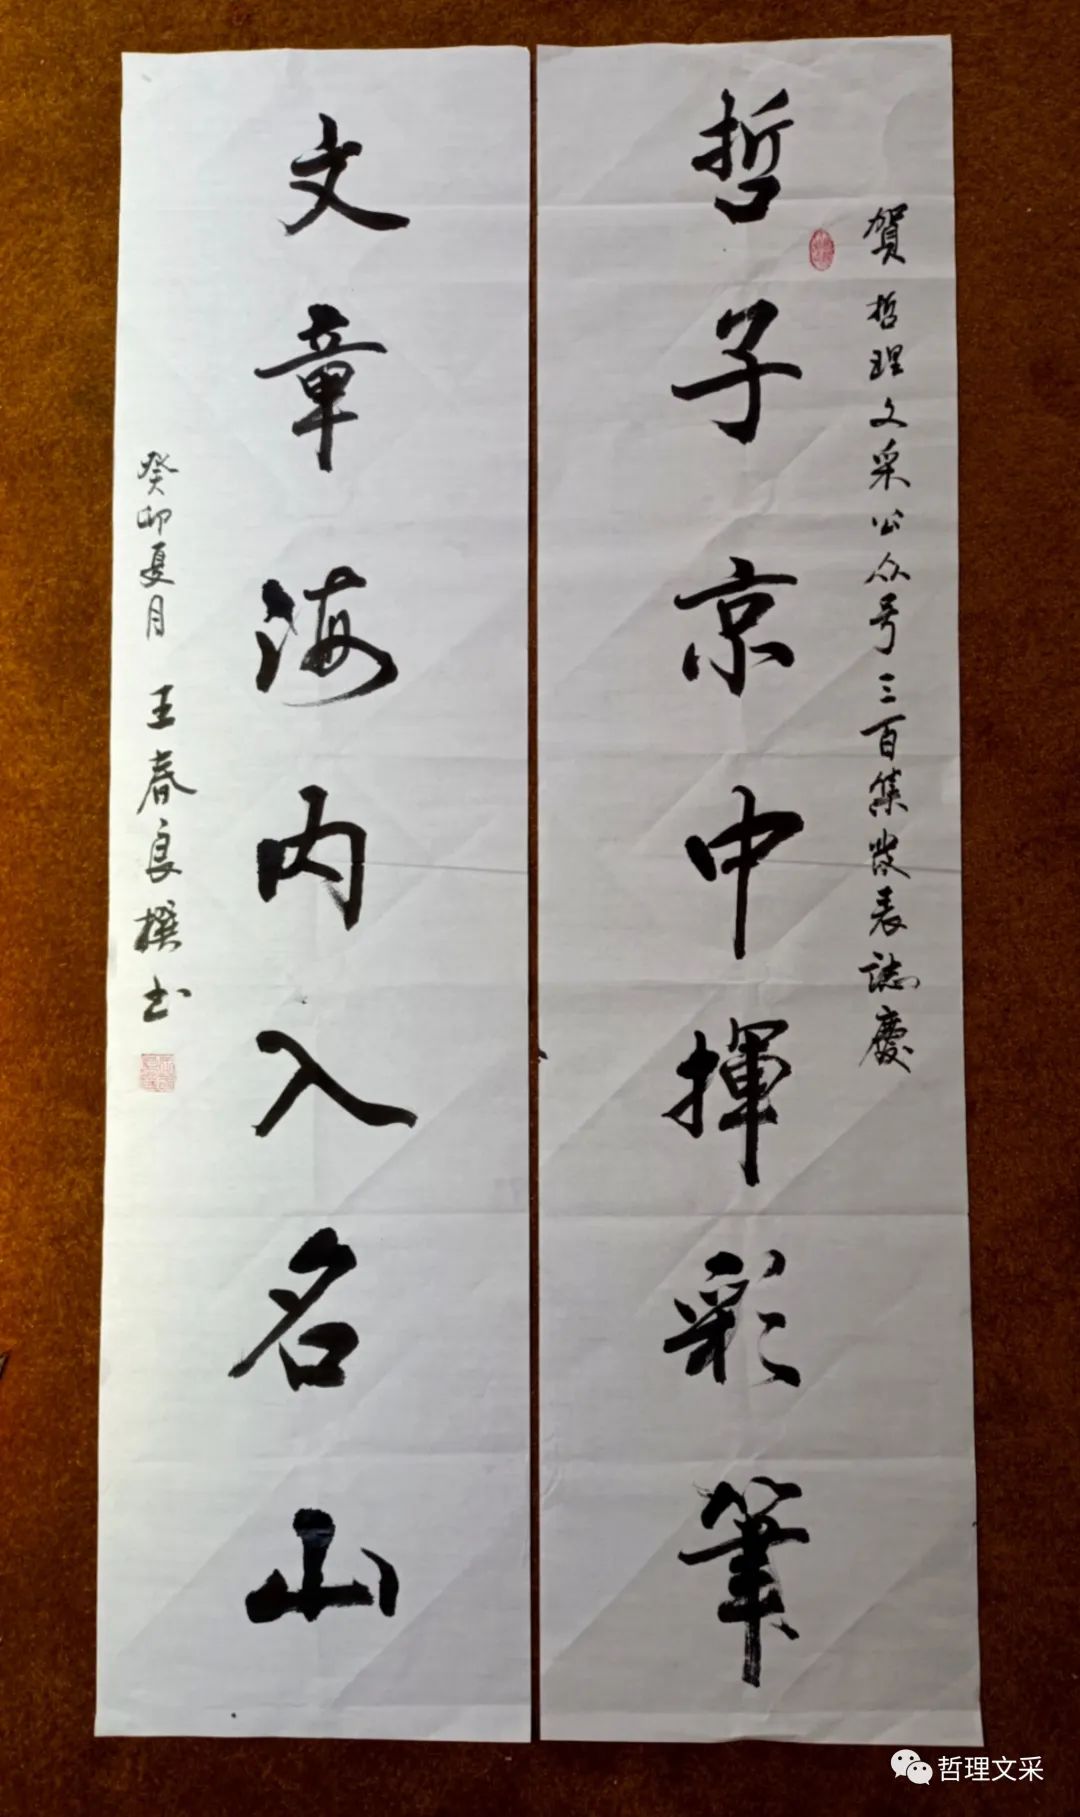 賀哲理文采公众号三百集发表誌慶
哲子京中揮彩筆
文章海内入名山
癸卯夏月 王春良撰书
哲理文采